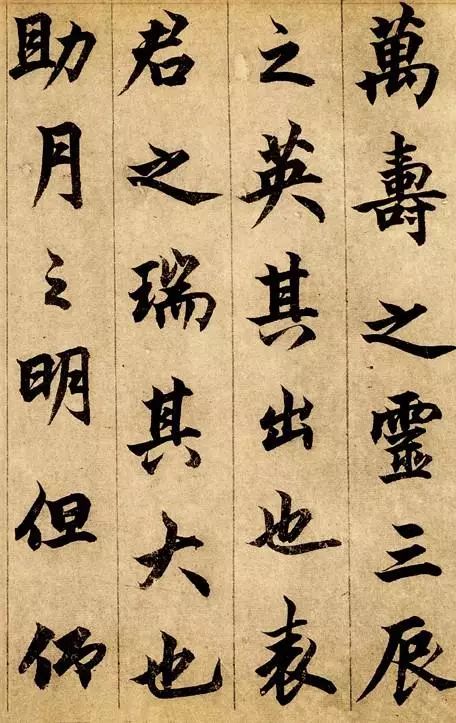 萬壽之靈三辰
之英其出也表
君之瑞其大也
助月之明但仰